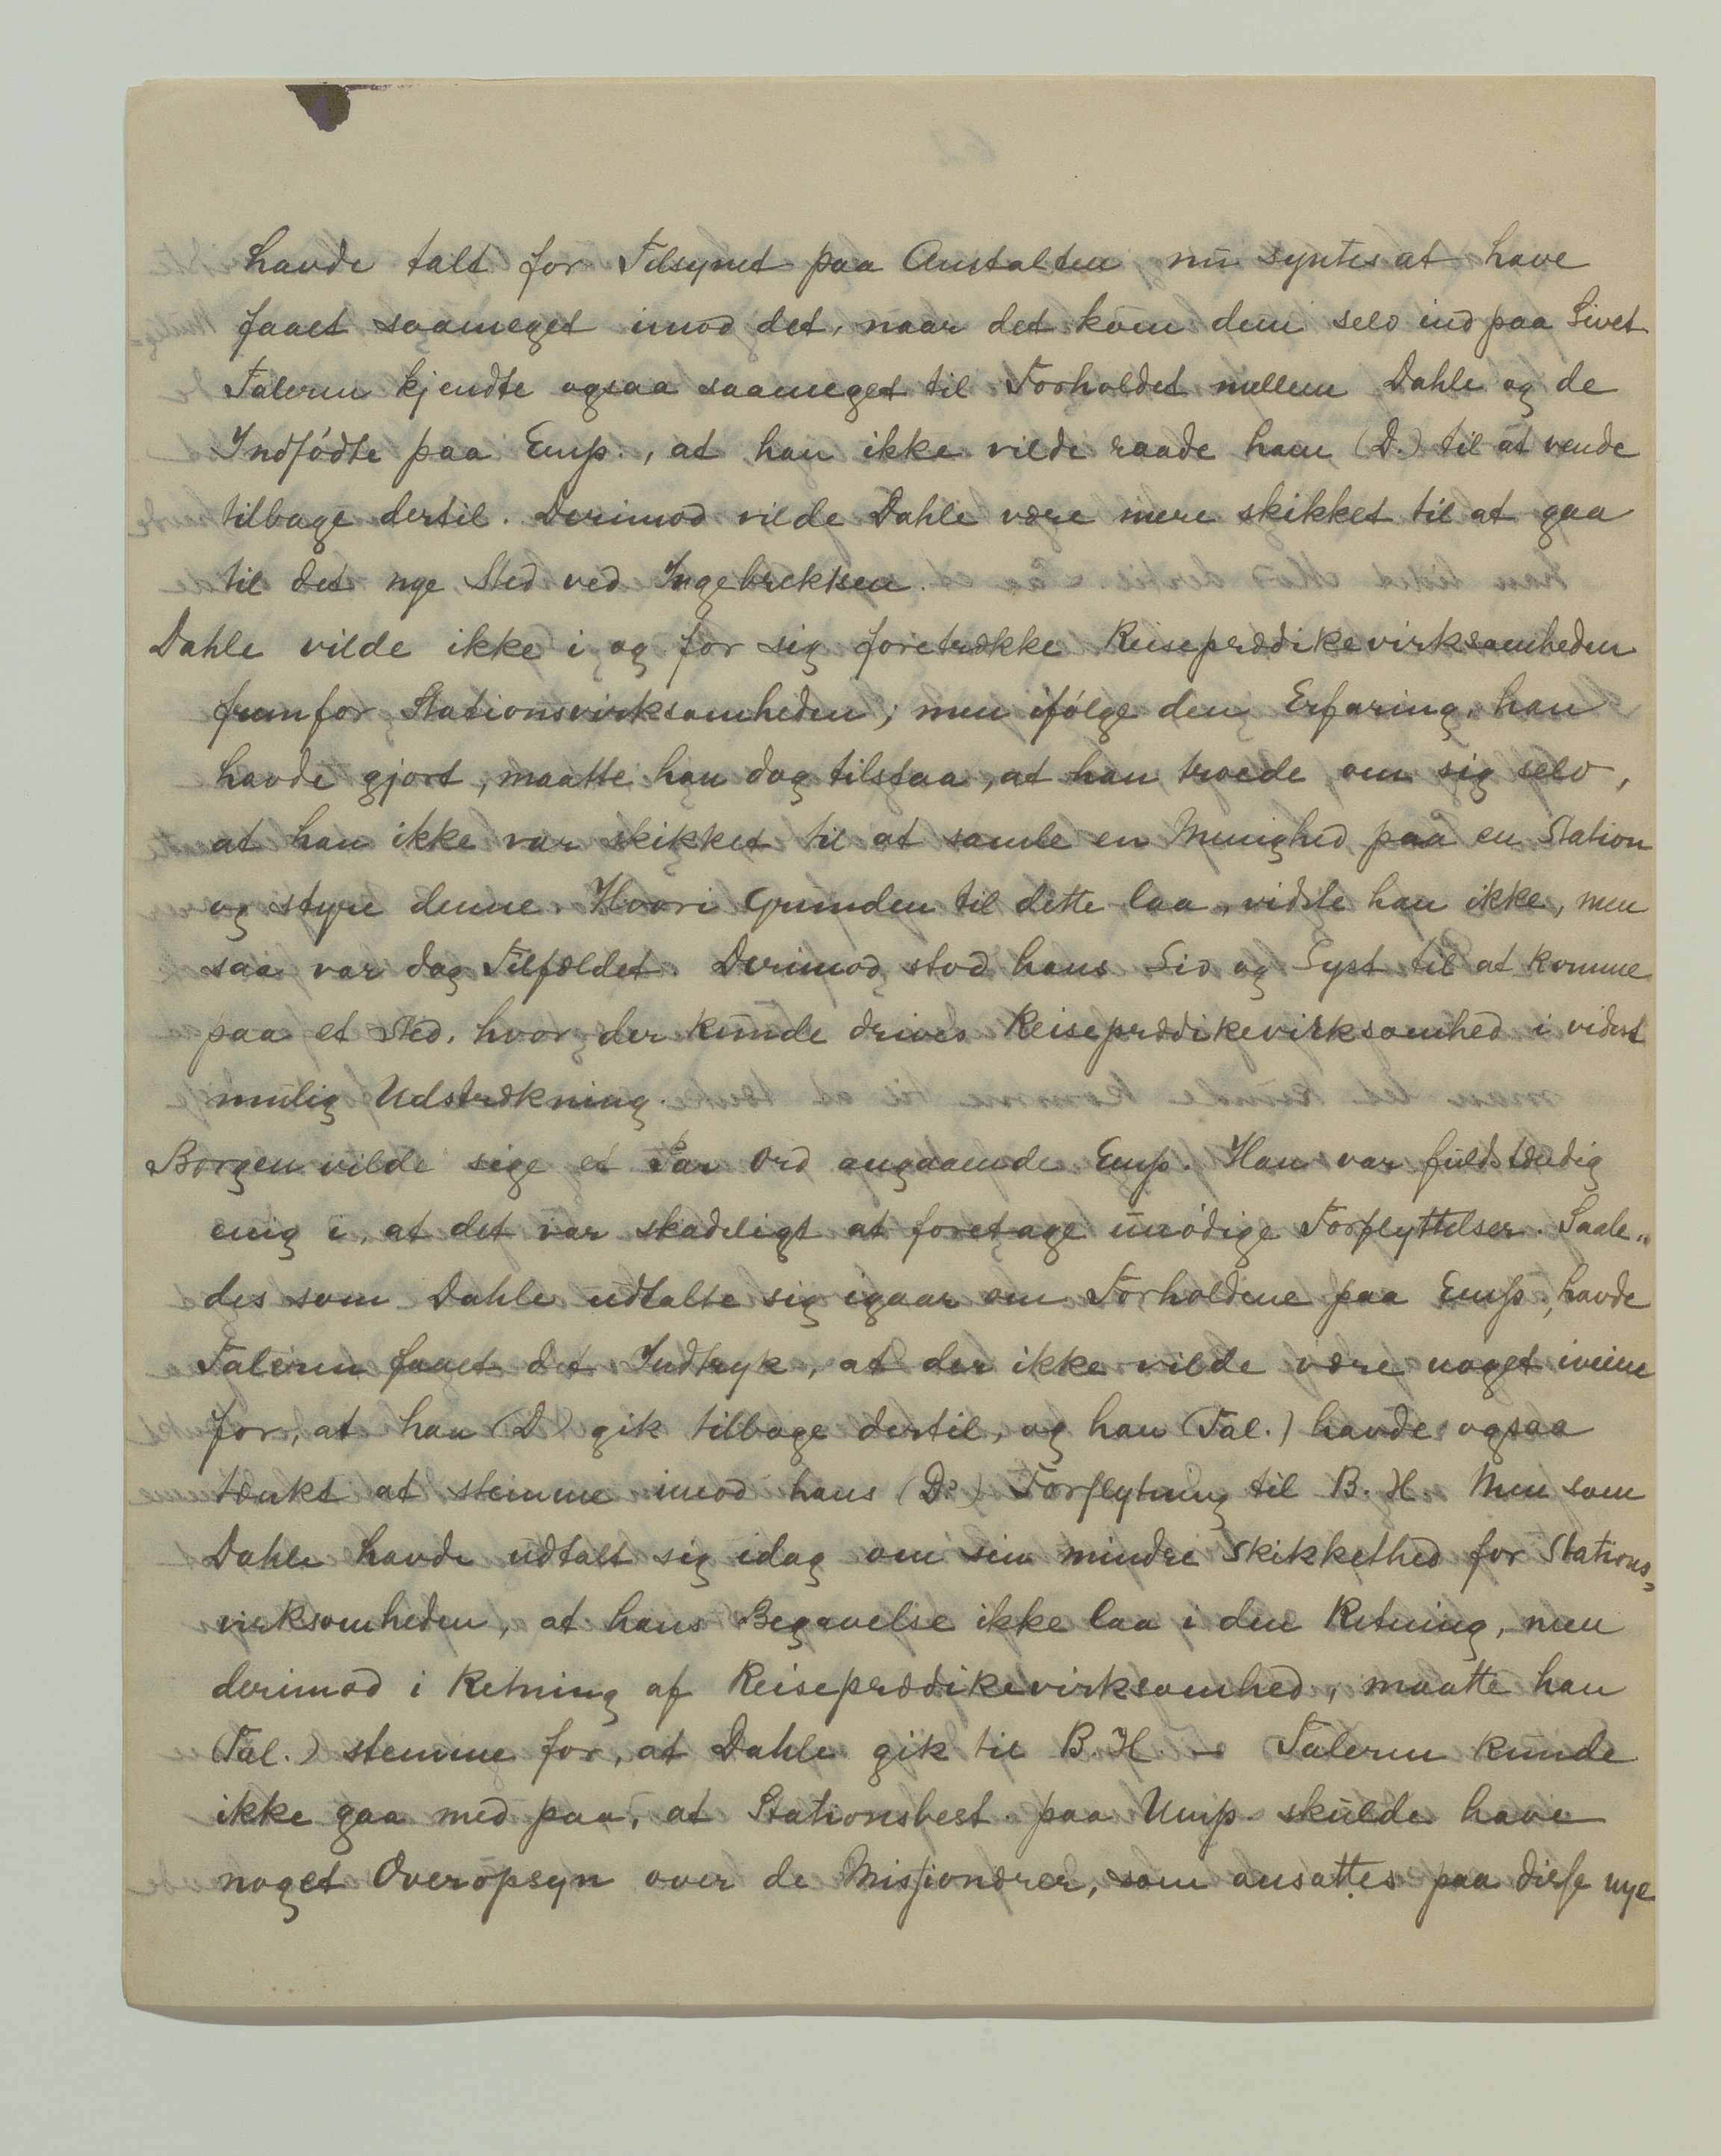 havde talt for Tilsynet paa Anstalten nu syntes at have
faaet saameget imod det, naar det kom dem selv ind paa Livet
Taleren kjendte ogsaa saameget til Forholdet mellem Dahle og de
Indfødte paa Emp., at han ikke vilde raade ham (D.) til at vende
tilbage dertil. Derimod vilde Dahle være mere skikket til at gaa
til det nye Sted ved Ingebrektsen.
Dahle vilde ikke i og for sig foretrække Reiseprædikevirksomheden
fremfor Stationsvirksomheden; men ifølge den Erfaring, han
havde gjort, maatte han dog tilstaa, at han troede om sig selv,
at han ikke var skikket til at samle en Menighed paa en Station
og styre denne. Hvori Grunden til dette laa, vidste han ikke, men
saa var dog Tilfældet. Derimod stod hans Sid og Lyst til at komme
paa et Sted, hvor der kunde drives Reiseprædikevirksomhed i videst
mulig Udstrækning.
Borgen vilde sige et Par Ord angaaende Emp. Han var fuldstændig
enig i, at det var skadeligt at foretage unødige Forflyttelser. Saale„
des som Dahle udtalte sig igaar om Forholdene paa Emp., havde
Taleren faaet det Indtryk, at der ikke vilde være noget iveien
for, at han (D) gik tilbage dertil, og han (Tal.) havde ogsaa
tænkt at stemme imod hans (D's) Forflytning til B. H. Men som
Dahle havde udtalt sig idag om sin mindre Skikkethed for Stations=
virksomheden, at hans Begavelse ikke laa i den Retning, men
derimod i Retning af Reiseprædikevirksomhed, maatte han
(Tal.) stemme for, at Dahle gik til B. H – Taleren kunde
ikke gaa med paa, at Stationsbest. paa Ump. skulde have
noget Overopsyn over de Missionærer, som ansattes paa disse nye